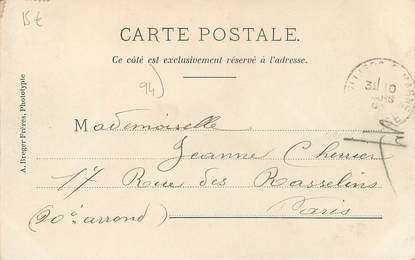 15 €
CARTE POSTALE.
Ce côté est exclusivement réservé à l'adresse.
94
A. Breger Frères, Phototypie
Mademoiselle
Jeanne Cherrier
17 Rue des Rasselins
(20e arrond) Paris